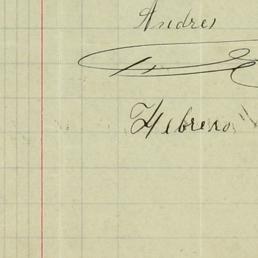 Andres
Hebrero